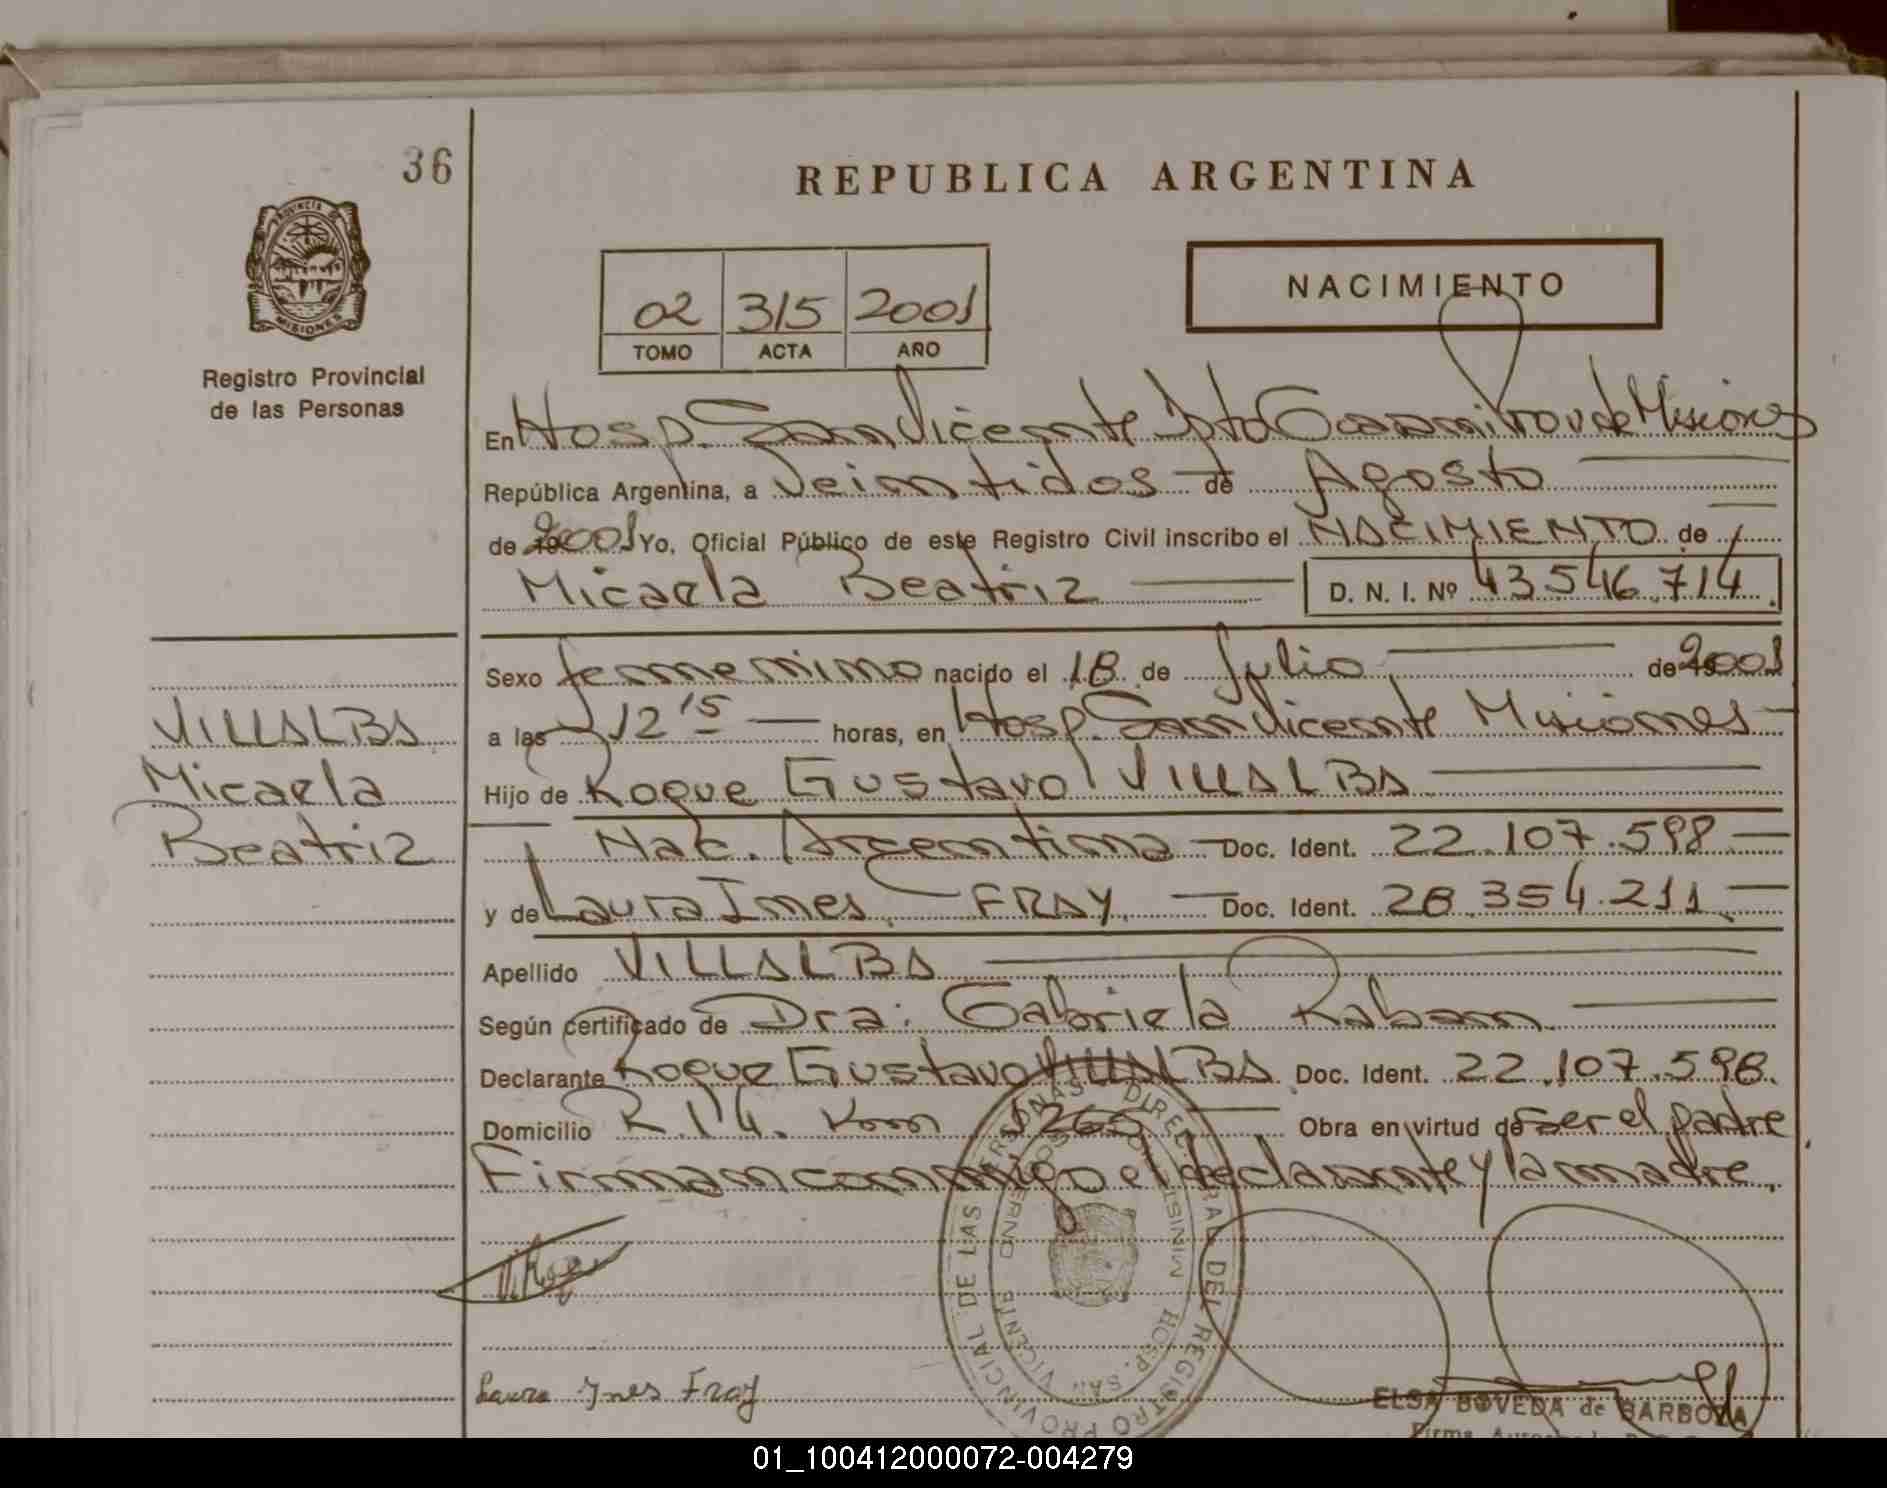 36
PROVINCIA DE
MISIONES
Registro Provincial
de las Personas
REPUBLICA ARGENTINA
02 315 2001
TOMO ACTA AÑO
NACIMIENTO
En Hosp. San Vicente Dpto Guarani Prov de Misiones
República Argentina, a Veintidos de Agosto
de 2001 Yo, Oficial Público de este Registro Civil inscribo el NACIMIENTO de
Micaela Beatriz D. N. I. Nº 43.546.714.
Sexo femenino nacido el 18 de Julio de 2001
a las 12 15 horas, en Hosp. San Vicente Misiones
Hijo de Roque Gustavo VILLALBA
Nac. Argentina Doc. Ident. 22.107.598
y de Laura Ines FRAY. Doc. Ident. 28.354.211
Apellido VILLALBA
Según certificado de Dra: Gabriela Raban
Declarante Roque Gustavo VILLALBA Doc. Ident. 22.107.598.
Domicilio R. 14. Km 1265 Obra en virtud de ser el padre
Firman conmigo el declarante y la madre.
VILLALBA
Micaela
Beatriz
Laura Ines Fray
ELSA BOVEDA de BARBOZA
01_100412000072-004279